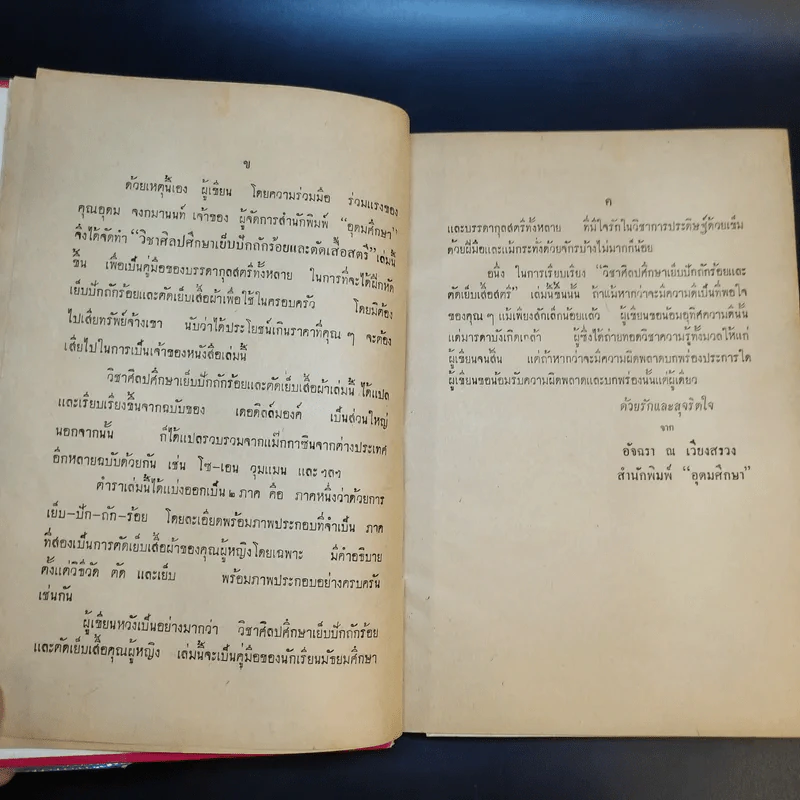 ข
ด้วยเหตุนี้เอง ผู้เขียน โดยความร่วมมือ ร่วมแรงของ
คุณอุดม จงกมานนท์ เจ้าของ ผู้จัดการสำนักพิมพ์ “อุดมศึกษา”
จึงได้จัดทำ “วิชาศิลปศึกษาเย็บปักถักร้อยและตัดเสื้อสตรี” เล่มนี้
ขึ้น เพื่อเป็นคู่มือของบรรดากุลสตรีทั้งหลาย ในการที่จะได้ฝึกหัด
เย็บปักถักร้อยและตัดเย็บเสื้อผ้าเพื่อใช้ในครอบครัว โดยมิต้อง
ไปเสียทรัพย์จ้างเขา นับว่าได้ประโยชน์เกินราคาที่คุณ ๆ จะต้อง
เสียไปในการเป็นเจ้าของหนังสือเล่มนี้
วิชาศิลปศึกษาเย็บปักถักร้อยและตัดเย็บเสื้อผ้าเล่มนี้ ได้แปล
และเรียบเรียงขึ้นจากฉบับของ เดอดิลล์มองค์ เป็นส่วนใหญ่
นอกจากนั้น ก็ได้แปลรวบรวมจากแม็กกาซินจากต่างประเทศ
อีกหลายฉบับด้วยกัน เช่น โซ-เอน วูแมน และ ฯลฯ
ตำราเล่มนี้ได้แบ่งออกเป็น ๒ ภาค คือ ภาคหนึ่งว่าด้วยการ
เย็บ-ปัก-ถัก-ร้อย โดยละเอียดพร้อมภาพประกอบที่จำเป็น ภาค
ที่สองเป็นการตัดเย็บเสื้อผ้าของคุณผู้หญิงโดยเฉพาะ มีคำอธิบาย
ตั้งแต่วิธีวัด ตัด และเย็บ พร้อมภาพประกอบอย่างครบครัน
เช่นกัน
ผู้เขียนหวังเป็นอย่างมากว่า วิชาศิลปศึกษาเย็บปักถักร้อย
และตัดเย็บเสื้อคุณผู้หญิง เล่มนี้จะเป็นคู่มือของนักเรียนมัธยมศึกษา
ค
และบรรดากุลสตรีทั้งหลาย ที่มีใจรักในวิชาการประดิษฐ์ด้วยเข็ม
ด้วยฝีมือและแม้กระทั่งด้วยจักรบ้างไม่มากก็น้อย
อนึ่ง ในการเรียบเรียง “วิชาศิลปศึกษาเย็บปักถักร้อยและ
ตัดเย็บเสื้อสตรี” เล่มนี้ขึ้นนั้น ถ้าแม้หากว่าจะมีความดีเป็นที่พอใจ
ของคุณ ๆ แม้เพียงสักเล็กน้อยแล้ว ผู้เขียนขอน้อมอุทิศความดีนั้น
แด่มารดาบังเกิดเกล้า ผู้ซึ่งได้ถ่ายทอดวิชาความรู้ทั้งมวลให้แก่
ผู้เขียนจนสิ้น แต่ถ้าหากว่าจะมีความผิดพลาดบกพร่องประการใด
ผู้เขียนขอน้อมรับความผิดพลาดและบกพร่องนั้นแต่ผู้เดียว
ด้วยรักและสุจริตใจ
จาก
อัจฉรา ณ เวียงสรวง
สำนักพิมพ์ “อุดมศึกษา”